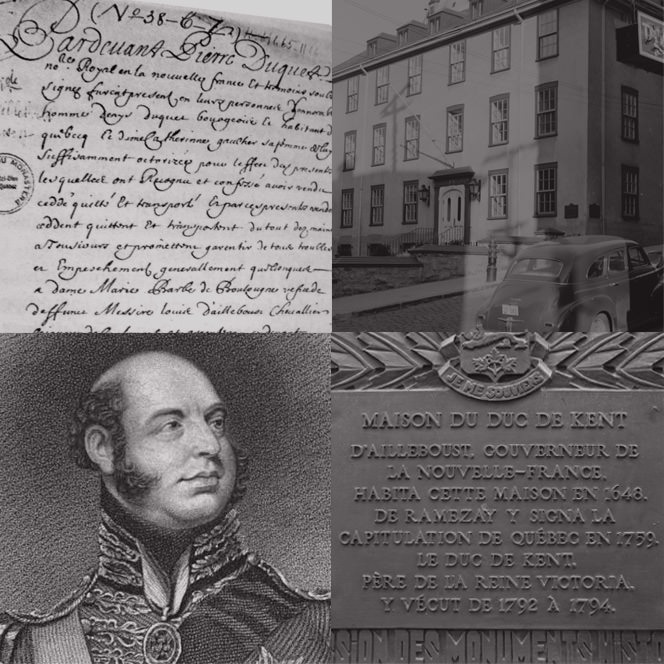 (N° 38-67)
Pardevant Pierre Duquet
no.re Royal en la nouvelle france et temoins soub
signez furent present en leurs personnes
homme denys duquet bourgeois et habitant de
québecq et dame Catherinne gauthier sa femme
suffisamment octorizée pour leffect des presentes
lesquelles ont Recognu et confessé avoir vendu
ceddé quitté et transporté Et par ces presentes vende
ceddent quittent et transportent du tout des main
a Tousiours et promettent garentir de tous troubles
et Empeschemens generallement quelconques
a dame Marie Barbe de Boulongne vefve de
deffunct Messire louis d'ailleboust Chevallier
JE ME SOUVIENS
MAISON DU DUC DE KENT
D'AILLEBOUST, GOUVERNEUR DE
LA NOUVELLE-FRANCE,
HABITA CETTE MAISON EN 1648.
DE RAMEZAY Y SIGNA LA
CAPITULATION DE QUÉBEC EN 1759.
LE DUC DE KENT,
PÈRE DE LA REINE VICTORIA,
Y VÉCUT DE 1792 À 1794.
SION DES MONUMENTS HISTO